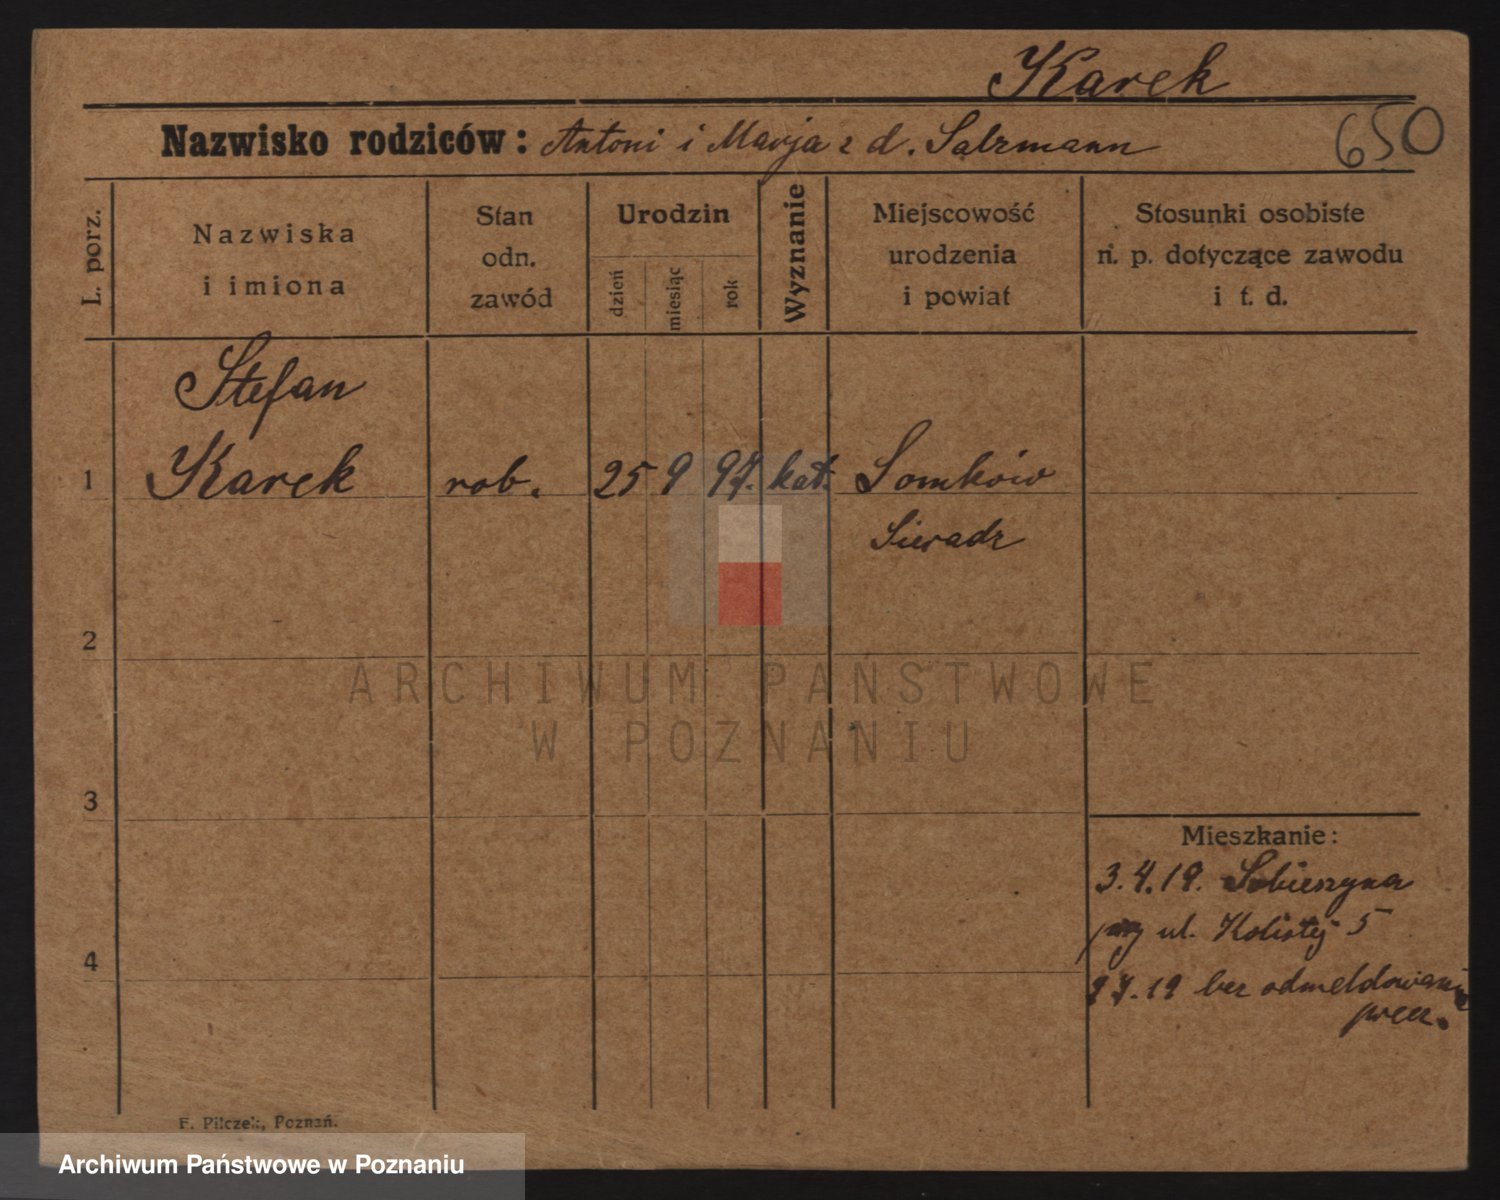 Karek
650
Nazwisko rodziców: Antoni i Marja z d. Salzmann
L. porz.
Nazwiska
i imiona
Stan
odn.
zawód
Urodzin
dzień
miesiąc
rok
Wyznanie
Miejscowość
urodzenia
i powiat
Stosunki osobiste
n. p. dotyczące zawodu
i t. d.
Stefan
1 Karek rob. 25 9 97. kat. Somków
Sieradz
2
ARCHIWUM PAŃSTWOWE
W POZNANIU
3
Mieszkanie:
3.4.19.
ul. Kolistej 5
4
bez odmeldowania
precz.
F. Pilczek, Poznań.
Archiwum Państwowe w Poznaniu